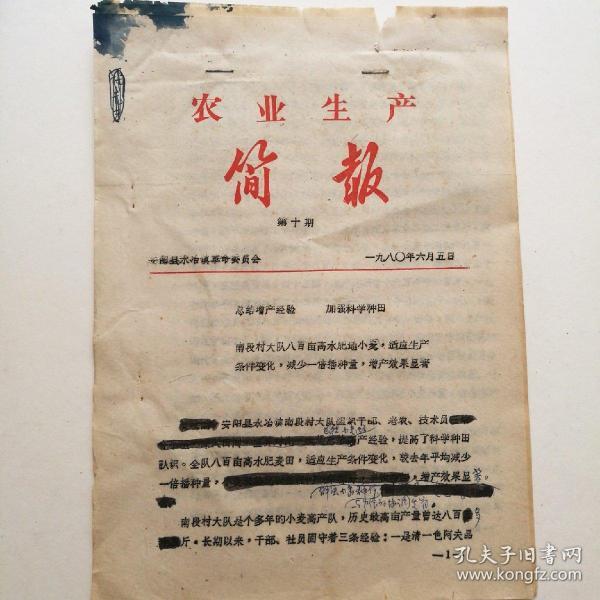 农业生产
简报
第十期
安阳县水冶镇革命委员会 一九八〇年六月五日
总结增产经验 加强科学种田
南段村大队八百亩高水肥地小麦，适应生产
条件变化，减少一倍播种量，增产效果显著
安阳县水冶镇南段村大队组织干部、老农、技术员
产经验，提高了科学种田
认识。全队八百亩高水肥麦田，适应生产条件变化，较去年平均减少
一倍播种量，增产效果显
南段村大队是个多年的小麦高产队，历史最高亩产量曾达八百多
斤．长期以来，干部、社员固守着三条经验：一是清一色阿夫品
—1—
孔夫子旧书网
www.kongfz.com